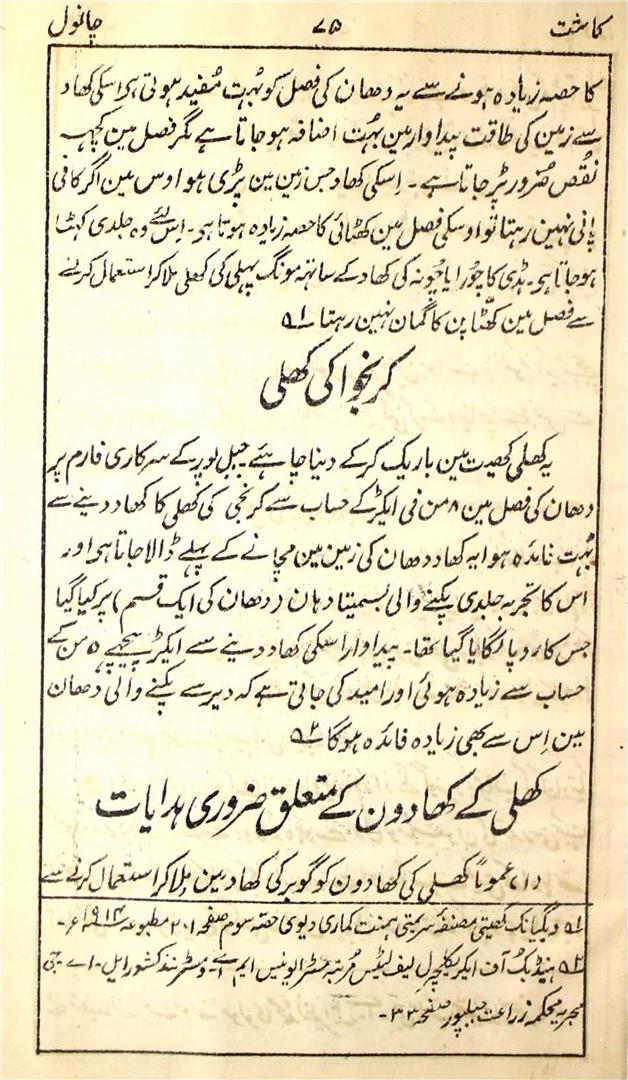 کاشت ۷۵ چانول
کا حصہ زیادہ ہونے سے یہ دھان کی فصل کو بہت مُفید ہوتی ہی اسکی کھاد
سے زمین کی طاقت پیداوار مین بہُت اضافہ ہو جاتا ہے مگر فصل مین کچہہ
نقُص ضرور پڑ جاتا ہے ۔ اِسکی کھاد جس زمین مین پڑی ہو اوس مین اگر کافی
پانی نہین رہتا تو اوسکی فصل مین کھٹائی کا حصہ زیادہ ہوتا ہی ۔ اِس لئے وہ جلدی کہٹا
ہو جاتا ہی ۔ ہڈی کا چُورا یا چُونہ کی کھاد کے ساتہہ مونگ پہلی کی کھلی ملا کر استعمال کرنے
سے فصل مین کھٹّا پن کا گمان نہین رہتا ۵۱
کرنجوا کی کھلی
یہ کھلی کھیت مین باریک کرکے دینا چاہئے ۔ جبل پور کے سرکاری فارم پر
دھان کی فصل مین ۸ من فی ایکڑ کے حساب سے کرنجی کی کھلی کا کھاد دینے سے
بہُت فائدہ ہوا یہ کھاد دھان کی زمین مین مچانے کے پہلے ڈالا جاتا ہی اور
اس کا تجربہ جلدی پکنے والی بسمیتا دہان (دھان کی ایک قسم) پر کیا گیا
جس کا روپا لگایا گیا تھا ۔ پیداوار اسکی کھاد دینے سے ایکڑ پیچھے ۵ من کے
حساب سے زیادہ ہوئی اور امید کی جاتی ہے کہ دیر سے پکنے والی دھان
مین اِس سے بھی زیادہ فائدہ ہوگا ۵۲
کھلی کے کھادون کے متعلق ضروری ہدایات
(۱) عموماً کھلی کی کھادون کو گوبر کی کھاد مین ملا کر استعمال کرنے سے
۵۱ ویگیانک کھیتی مصنفہ سریمتی ہمنت کماری دیوی حصہ سوم صفحہ ۲۰۱ مطبوعہ ۱۹۱۴ء ۔
۵۲ ہینڈبک آف ایگریکلچرل لیف لیٹس مُرتبہ مسٹر ایونیس ایم اے و مسٹر نند کشور ایل ۔ اے ۔ جی
مجریہ محکمہ زراعت جبلپور صفحہ ۳۳ ۔